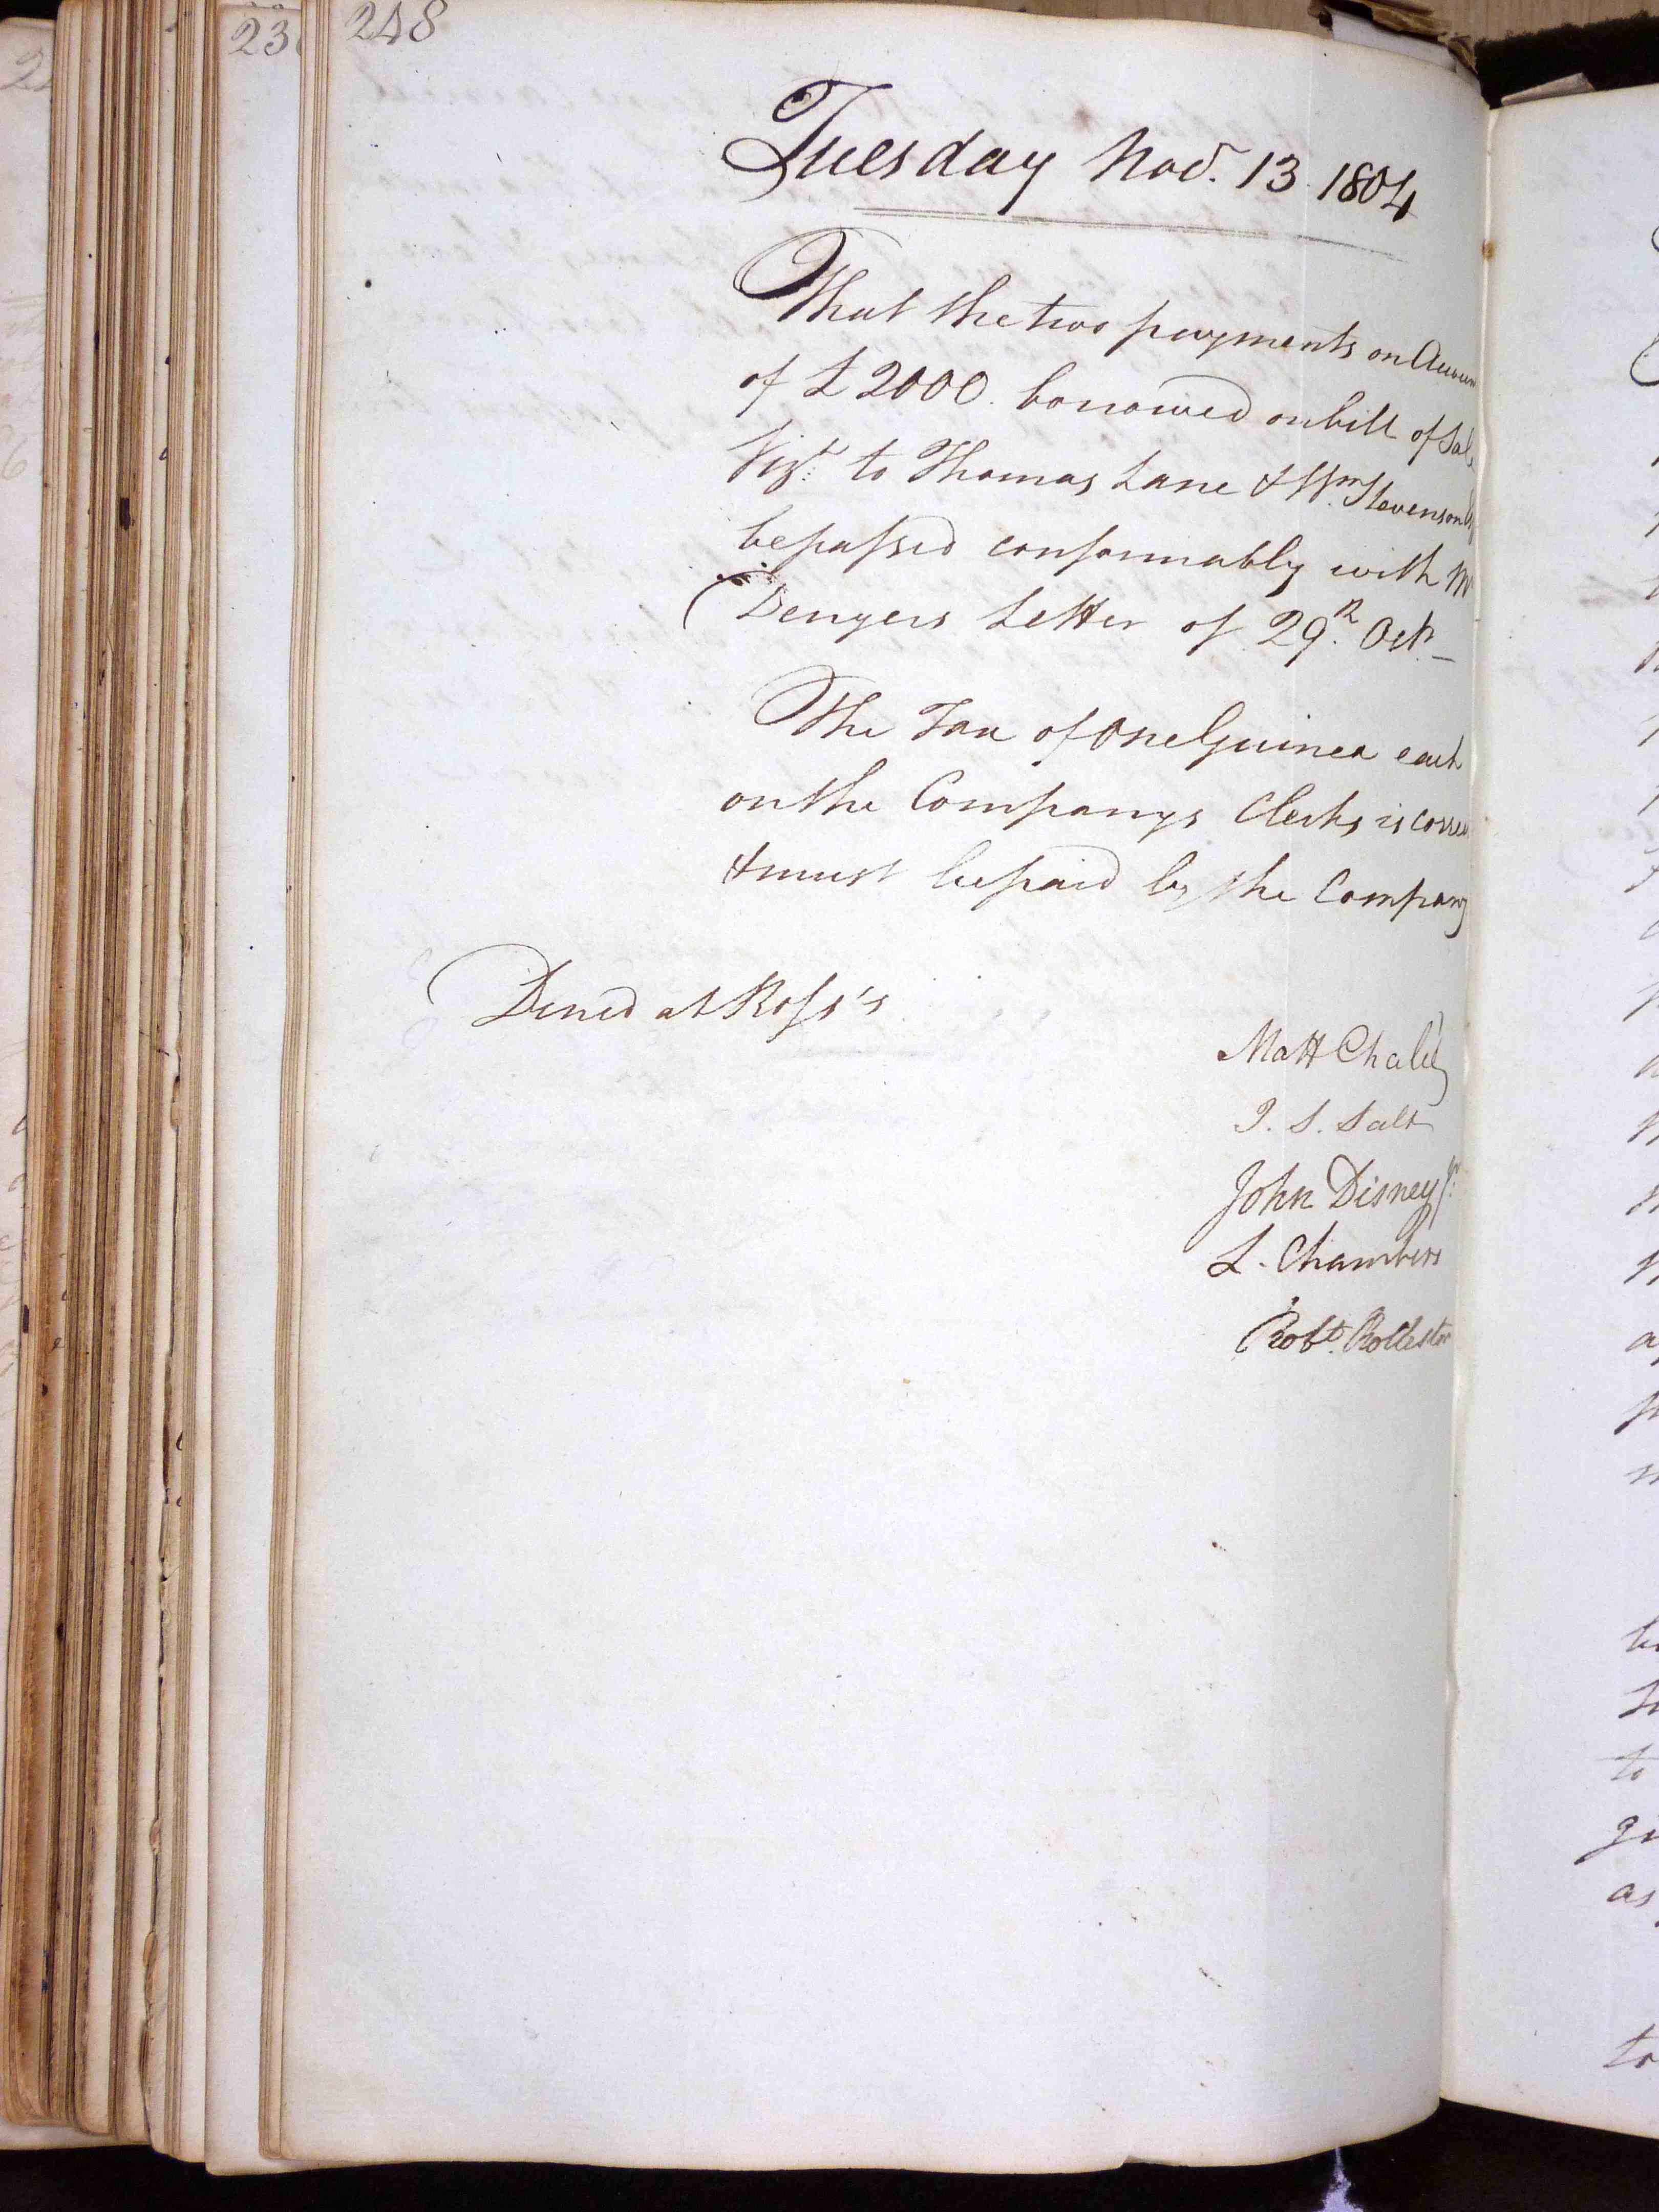 248
Tuesday Nov. 13 1804
That the two payments on Accoun
of £2000. borrowed on bill of Sale
Vizt: to Thomas Lane & Wm. Stevenson
be passed conformably with Mr
Dengers Letter of 29.th Octr
The Tax of One Guinea each
on the Companys Clerks is correc
& must be paid by the Company
Dined at Ross's
Matt Chalié
J. S. Salt
John Disney Jr.
L. Chambers
Robt. Rolleston